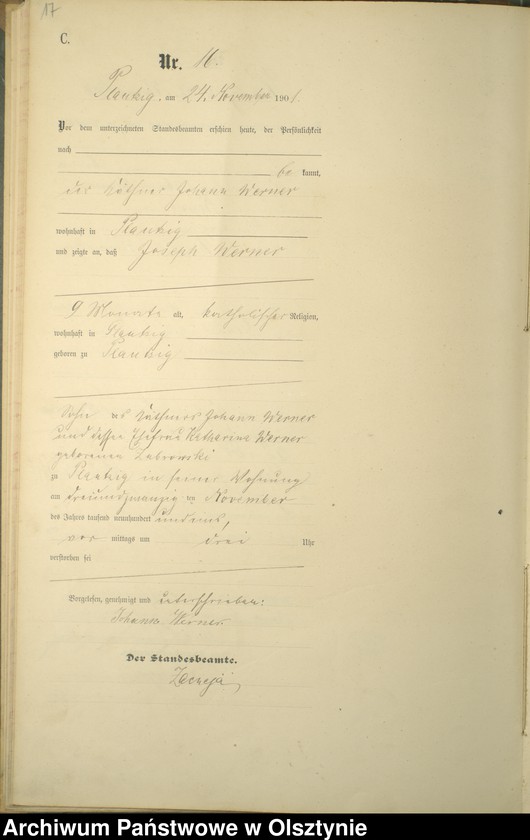 17
C.
Nr. 16.
Plautzig, am 24. November 1901.
Vor dem unterzeichneten Standesbeamten erschien heute, der Persönlichkeit
nach
be kannt,
der Käthner Johann Werner
wohnhaft in Plautzig
und zeigte an, daß Joseph Werner
9 Monate alt, katholischer Religion,
wohnhaft in Plautzig
geboren zu Plautzig
Sohn des Käthners Johann Werner
und dessen Ehefrau Katharina Werner
geborenen
zu Plautzig in seiner Wohnung
am dreiundzwanzig ten November
des Jahres tausend neunhundert und eins,
vor mittags um drei Uhr
verstorben sei
Vorgelesen, genehmigt und unterschrieben:
Johann Werner
Der Standesbeamte.
Archiwum Państwowe w Olsztynie